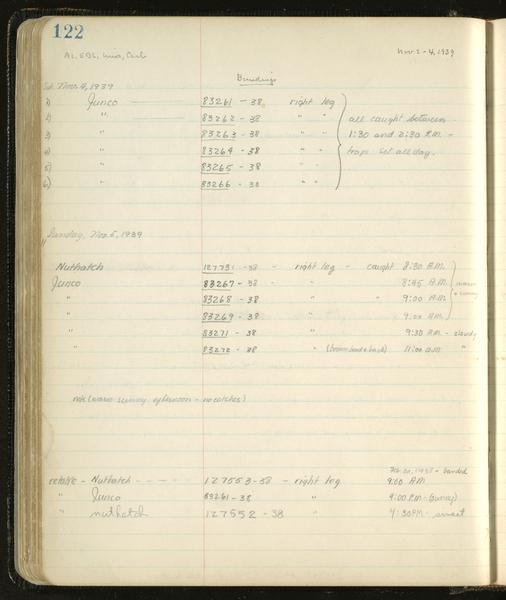 122
Nov. 2-4, 1939
Bandings
Sat. Nov. 4, 1939
1) Junco 83261 - 38 right leg
2) " 83262 - 38 " " all caught between
3) " 83263 - 38 " " 1:30 and 2:30 P.M. -
4) " 83264 - 38 " " traps set all day.
5) " 83265 - 38 " "
6) " 83266 - 38 " "
Sunday, Nov. 5, 1939
Nuthatch 127731 - 38 - right leg - caught 8:30 A.M.
Junco 83267 - 38 - " 8:45 A.M.
" 83268 - 38 " " 9:00 A.M.
" 83269 - 38 " 9:00 A.M.
" 83271 - 38 " 9:30 A.M. - cloudy
" 83272 - 38 " (brown head & back) 11:00 A.M. "
note (warm sunny afternoon - no catches)
1938 - banded
Nuthatch 127553-38 - right leg 9:00 AM
" Junco 83261-38 " 4:00 P.M. (sunny)
" nuthatch 127552-38 " 4:30PM - sunset